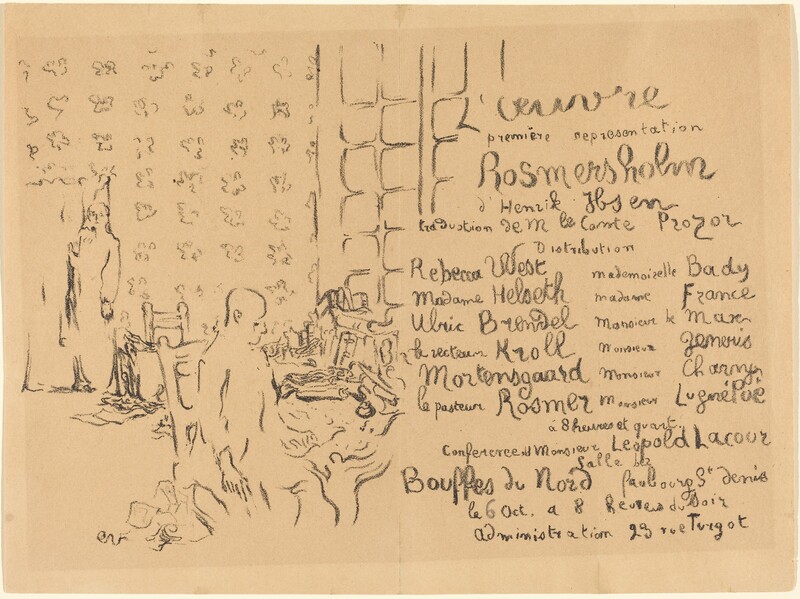 L'œuvre
première representation
Rosmersholm
d'Henrik Ibsen
traduction de M le Comte Prozor
Distribution
Rebecca West mademoiselle Bady
Madame Helseth madame France
Ulric Brendel Monsieur de Max
le recteur Kroll Monsieur
Mortensgaard Monsieur Charny
le pasteur Rosmer Monsieur LugnéPoë
à 8 heures et quart.
Conference de Monsieur Leopold Lacour
Salle des
Bouffes du Nord faubourg St denis
le 6 Oct. a 8 heures du Soir
administration 23 rue Turgot
ev